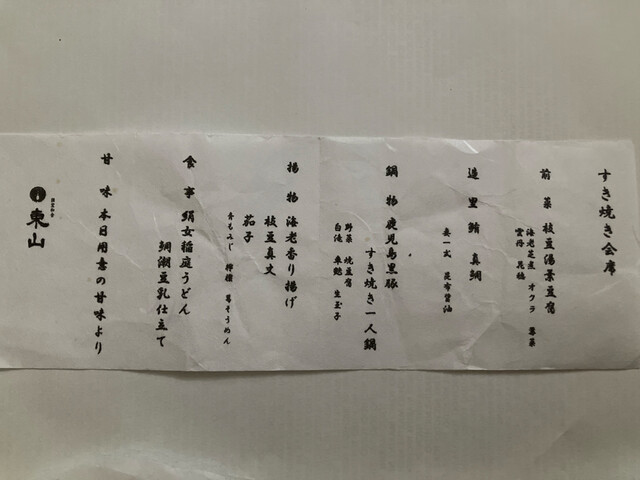 すき焼き会席
前菜 枝豆湯葉豆腐
海老芝煮 オクラ 蓴菜
雲丹 花穂
造里 鮪 真鯛
妻一式 昆布醤油
鍋物 鹿児島黒豚
すき焼き一人鍋
野菜 焼豆腐
白滝 車麩 生玉子
揚物 海老香り揚げ
枝豆真丈
茄子
青もみじ 檸檬 茗そうめん
食事 絹女稲庭うどん
鯛潮豆乳仕立て
甘味 本日用意の甘味より
東山